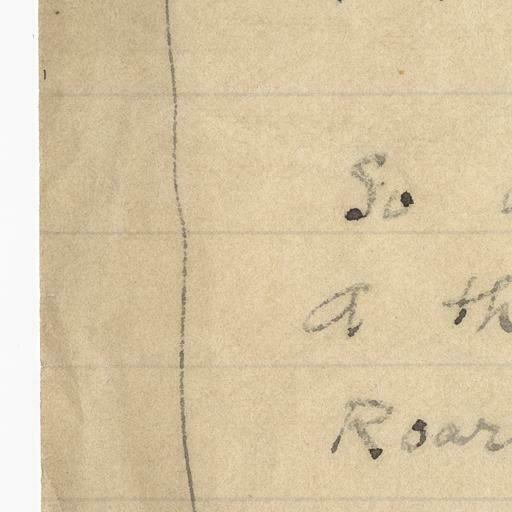 So
a th
Roar